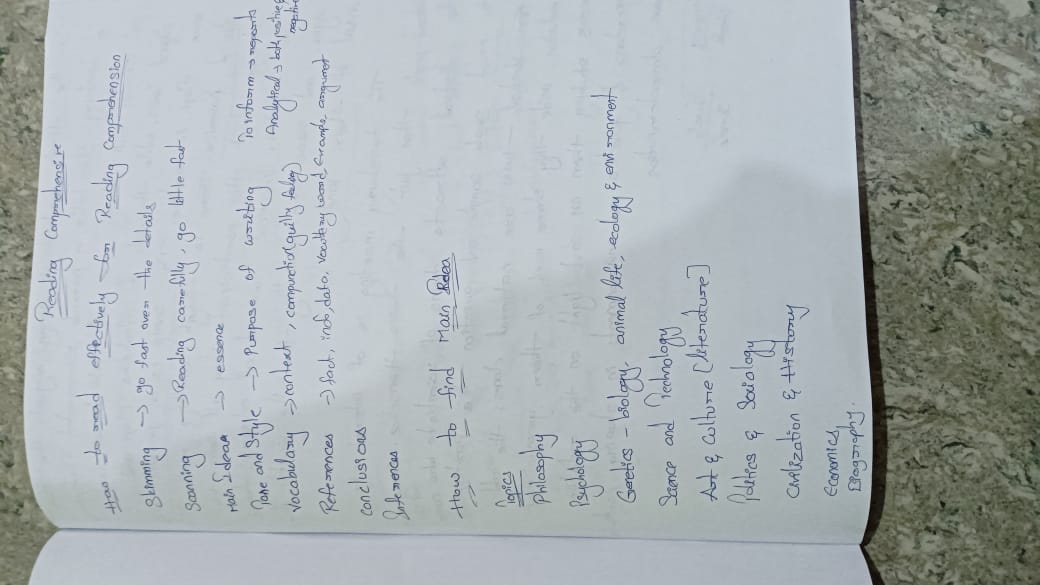 Reading Comprehensive
How to read effectively for Reading Comprehension
Skimming → go fast over the details
Scanning → Reading carefully, go little fast
Main Ideas → essence
Tone and Style → Purpose of writing To inform → reports
Analytical → both positive & negative
Vocabulary → context, compunction (guilty feeling)
References → fact, info, data, vocabulary word, example, argument
Conclusions
Inferences
How to find Main Idea
Topics
Philosophy
Psychology
Genetics - biology, animal life, ecology & environment
Science and Technology
Art & Culture [literature]
Politics & Sociology
Civilization & History
Economics
Biography.